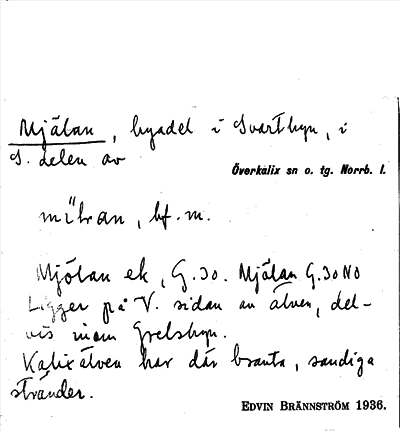 Mjälan, byadel i Svartbyn, i
S. delen av
Överkalix sn o. tg. Norrb. l.
bf. m.
Mjölan ek, G.30. Mjälan G.30 NO
Ligger på V. sidan av älven, del-
vis inom Grelsbyn.
Kalixälven har där branta, sandiga
stränder.
EDVIN BRÄNNSTRÖM 1936.